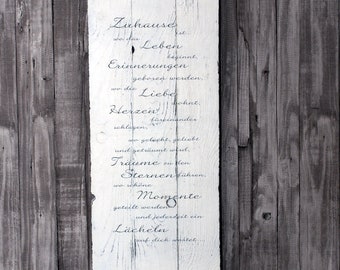 Zuhause
wo das ist
Leben
beginnt,
Erinnerungen
geboren werden,
wo die
Liebe
wohnt,
Herzen
füreinander
schlagen,
wo gelacht, geliebt
und geträumt wird,
Träume zu den
Sternen führen,
wo schöne
Momente
geteilt werden
und jederzeit ein
Lächeln
auf dich wartet...